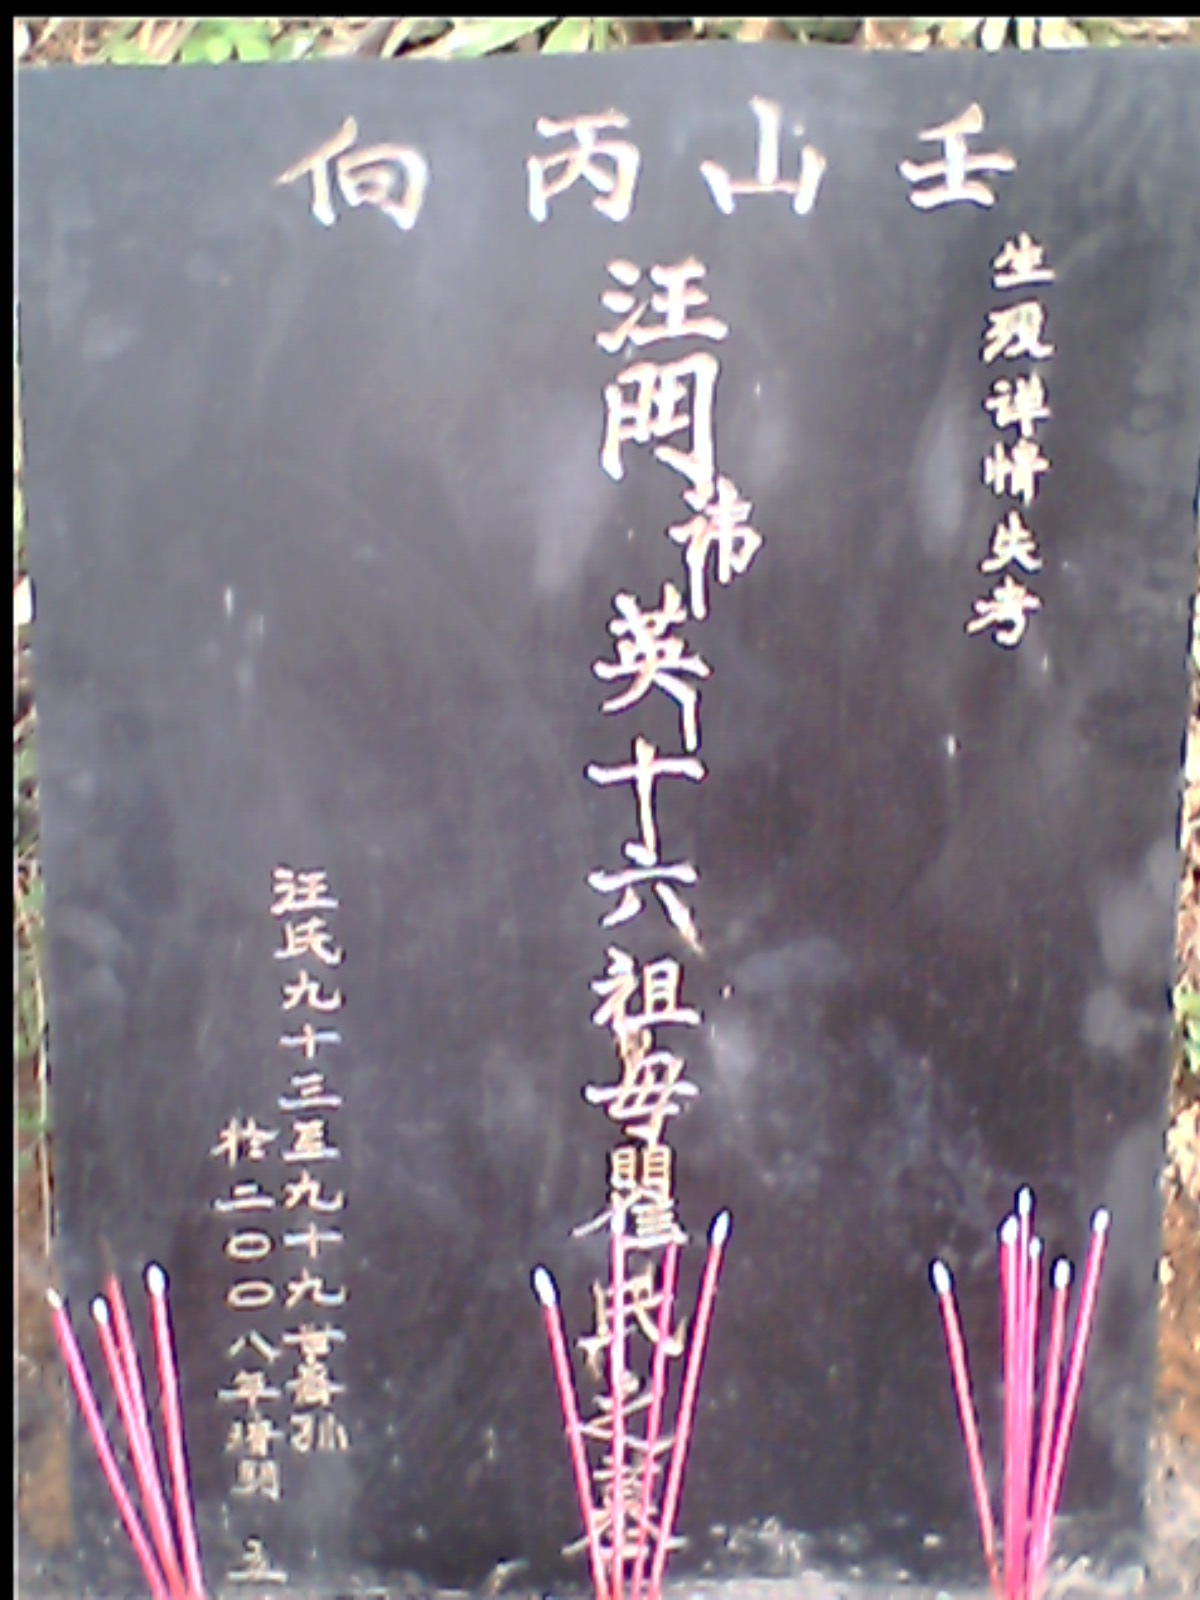 壬山丙向
生殁详情失考
汪門讳英十六祖母瞿氏之墓
汪氏九十三至九十九世裔孙
於二〇〇八年清明 立